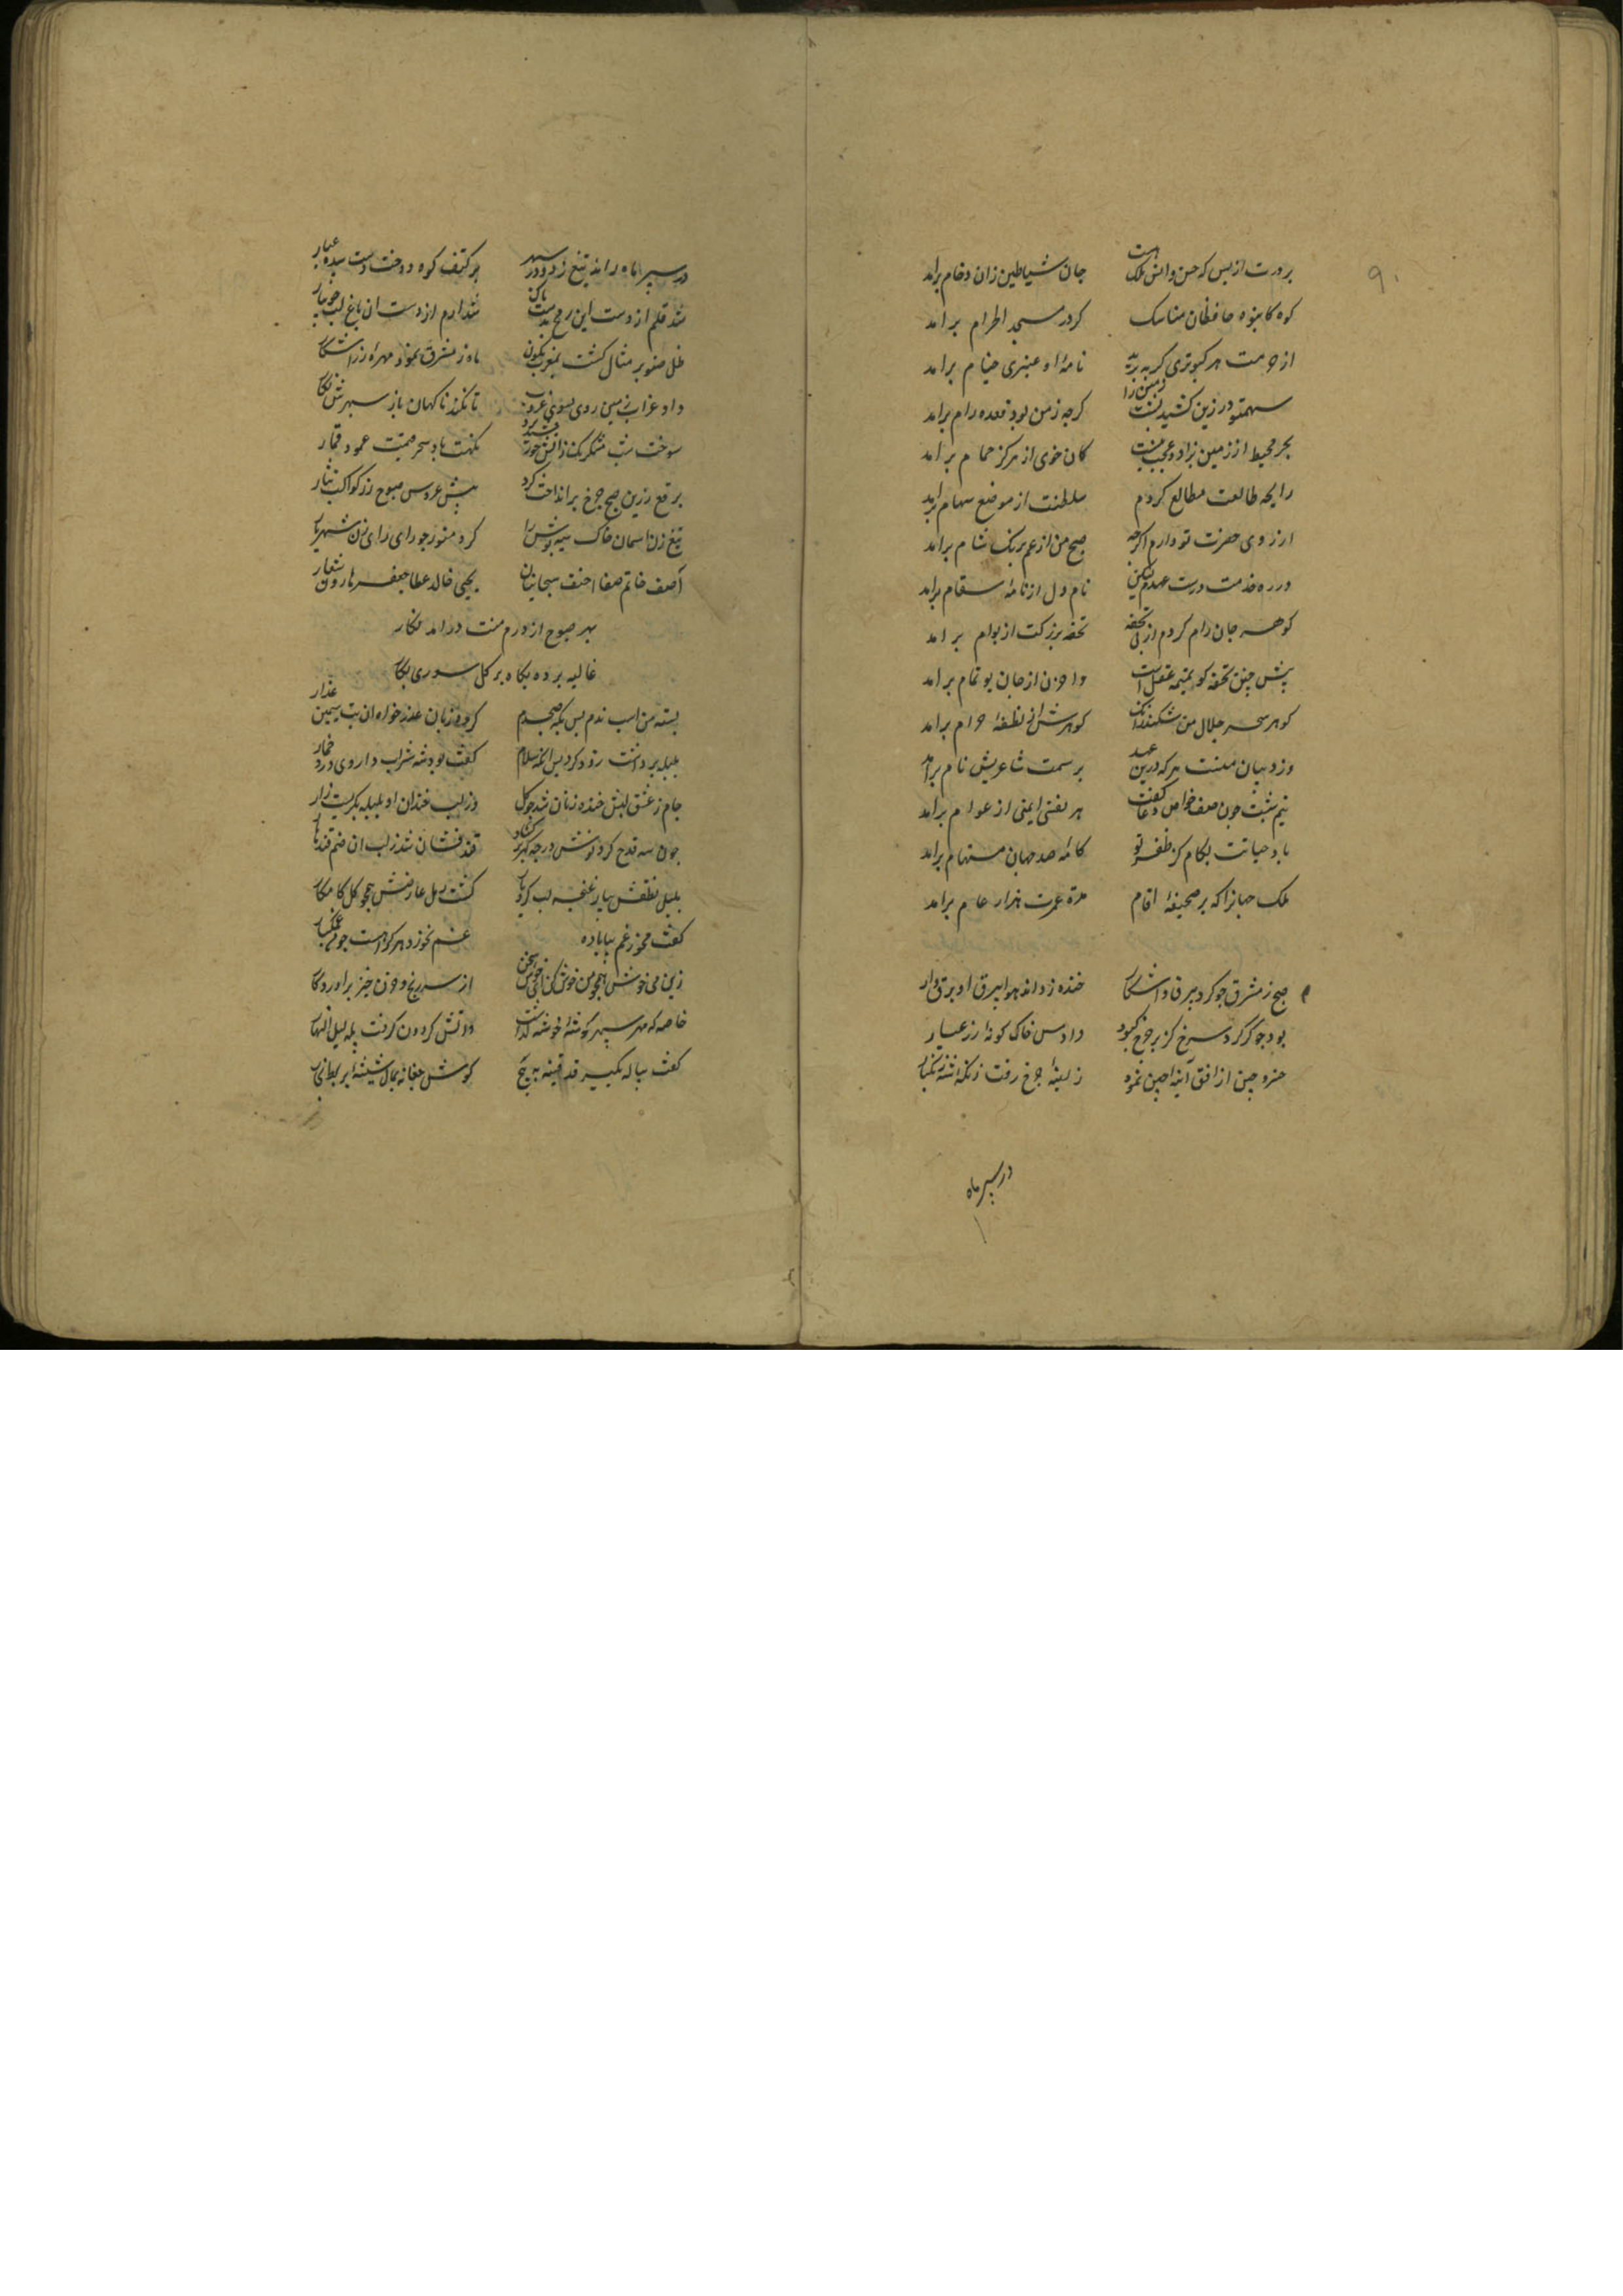 ۹۰
برورت از بس که حسن و انس ملک است جان شیاطین زان دخام براید
کوه کا بنوه حافظان مناسک کرد در مسجد الحرام برامد
از حرمت هر کبوتری که نامهٔ او عنبری ختام برامد
کرجه زمن بود قعده رام براید
بحر محیط از زمین بزاد و عجب نیست کان خوی از مرکز حمام برامد
رایجه طالعت مطالع کردم سلطنت از موضع سهام براید
ارزوی حضرت تو دارم اکرجه صبح من از غم برنک شام برامد
در ره خدمت درست عهدم لیکن نام دل از نامهٔ سقام براید
کوهر جان رام کردم از پی تحفه تحفه بزرکست از بوام برامد
پیش جنین تحفه کو تمیمه عقل است واحزن از جان بو تمام برامد
کوهر سحر حلال من شکند انک کوهرش از نطفهٔ حرام برامد
وزد بیان منست هر که درین عهد بر سمت شاعریش نام برامد
نیم شبت جون صف خواص دعا کفت هر نفسی ایمنی از عوام برامد
باد حیاتت بکام کز ظفر تو کامهٔ صد جهان مستهام براید
ملک جهانرا که بر صحیفهٔ اقام مدة عمرت هزار عام برامد
صبح ز مشرق جو کرد بیرق او اشکار خنده زد اندر هوا بیرق او برق وار
بود جو کوکرد سرخ کز بر جرخ کبود داد مس خاک کونهٔ زر عیار
خسرو جین از افق اینهٔ جین نمود زاینهٔ جرخ رفت زنکه زنکبار
در سپر ماه
در سپر ماه راند تیغ زراندود مهر بر کتف کوه دوخت دست سپیده غیار
شد قلم از دست این رمح بدست شد ارم از دست ان باغ لب جویبار
ظل صنوبر مثال کشت بمغرب نکون ماه ز مشرق نمود مهرهٔ زر اشکار
داد غراب زمین روی بسوی غروب تا نکند ناکهان باز سپهرش شکار
سوخت شب مشک رنک ز اتش خورشید نکهت باد سحر قیمت عود قمار
برقع زرین صبح جرخ برانداخت کرد پیش عروس صبوح زر کواکب نثار
تیغ زن اسمان خاک سیه پوش را کرد منور جو رای رای زن شهریار
آصف خاتم صفا احنف سحبان بیان یحیی خالد عطا جعفر هارون شعار
بهر صبوح از درم مست درامد نکار
غالیه برده بکاه بر کل سوری بکار
بسته من اسب ندم بس بکه صبحدم کرده زبان عذر خواه ان بت سیمین عذار
بلبله برداشت زود کرد پس انکه سلام کفت بود سه شراب داروی درد خمار
جام ز عشق لبش خنده زنان شد جو کل وز لب خندان او بلبله بکریست زار
جون سه قدح کرد نوش درجه کهر کشاد قند فشان شد ز لب ان صنم قندهار
بلبل نطقش بیار غنجه لب کرد باز کشت ز مل عارضش همجو کل کامکار
کفت مخور غم بیا باده غم نخورد هر کراست جو من غمکسار
زین می خوش همجو من نوش کن از سر رنج و حزن خیز براورد مار
خاصه که مهر سپهر کوشهٔ خوشه کذاشت و اتش کردون کرفت پلهٔ لیل و نهار
کفت بیا که بکیر قد قنینه به کوش جغانه بمال سینهٔ بربط بخار